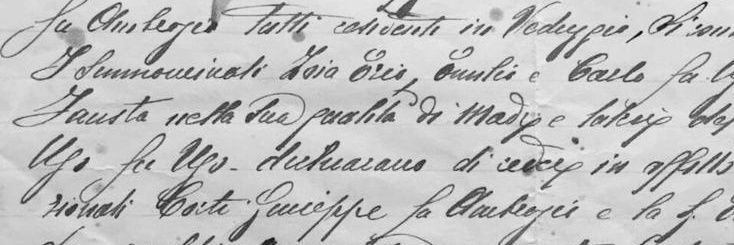 fu Ambrogio tutti residenti in Veduggio, si con
I summominati Zoia Ezio, Emilio e Carlo fu U
Fausta nella sua qualità di madre e tutrice del
Ugo fu Ugo - dichiarano di cedere in affitto
zionati Corti Giuseppe fu Ambrogio e la s.